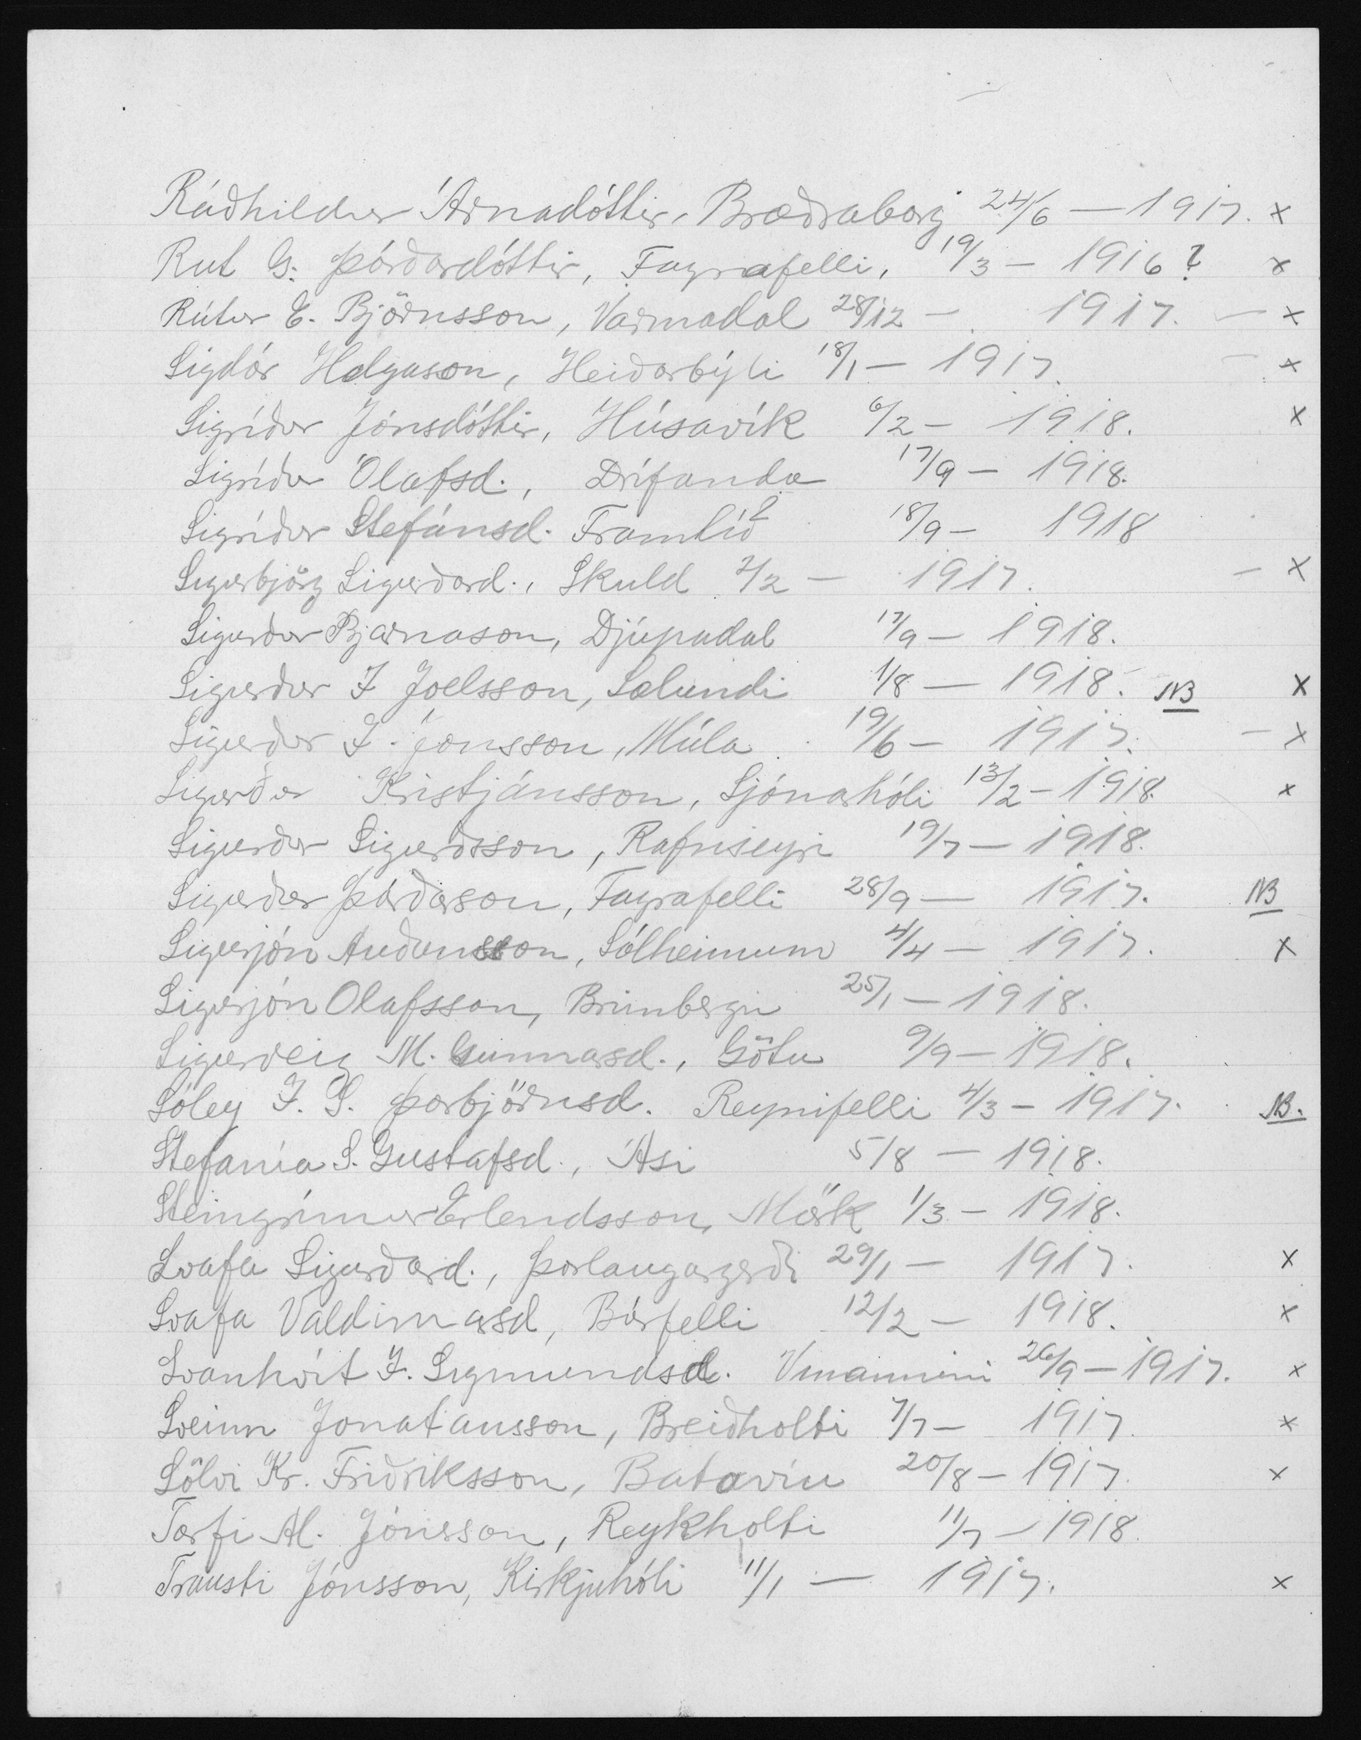 Ráðhildur Árnadóttir, Bræðraborg 24/6 — 1917. x
Rut G. Þórðardóttir, Fagrafelli, 19/3 — 1916? x
Rútur E. Björnsson, Varmadal 28/12 — 1917. — x
Sigdór Helgason, Heiðarbýli 18/1 — 1917. — x
Sigríður Jónsdóttir, Húsavík 6/2 — 1918. x
Sigríður Ólafsd., Drífanda 17/9 — 1918.
Sigríður Stefánsd. Framtíð? 18/9 — 1918
Sigurbjörg Sigurðard., Skuld 2/2 — 1917. — x
Sigurður Bjarnason, Djúpadal 17/9 — 1918.
Sigurður I Joelsson, Sælundi 1/8 — 1918. NB x
Sigurður I. Jónsson, Múla 19/6 — 1917. — x
Sigurður Kristjánsson, Sjónarhóli 13/2 — 1918. x
Sigurður Sigurðsson, Rafnseyri 19/7 — 1918.
Sigurður Þórðarson, Fagrafelli 28/9 — 1917. NB
Sigurjón Auðunsson, Sólheimum 4/4 — 1917. x
Sigurjón Ólafsson, Brimbergi 25/1 — 1918.
Sigurveig M. Gunnarsd., Götu 9/9 — 1918.
Sóley I. S. Þorbjörnsd. Reynifelli 4/3 — 1917. NB.
Stefanía S. Gustafsd., Ási 5/8 — 1918.
Steingrímur Erlendsson, Mörk 1/3 — 1918.
Svafa Sigurðard., Þorlaugargerði 29/1 — 1917. x
Svafa Valdimarsd, Búrfelli 12/2 — 1918. x
Svanhvít I. Sigmundsd. Vinaminni 26/9 — 1917. x
Sveinn Jonatansson, Breiðholti 7/7 — 1917. x
Sölvi Kr. Friðriksson, Bataviu 20/8 — 1917. x
Torfi Al. Jónsson, Reykholti 11/7 — 1918.
Trausti Jónsson, Kirkjuhóli 11/1 — 1917. x